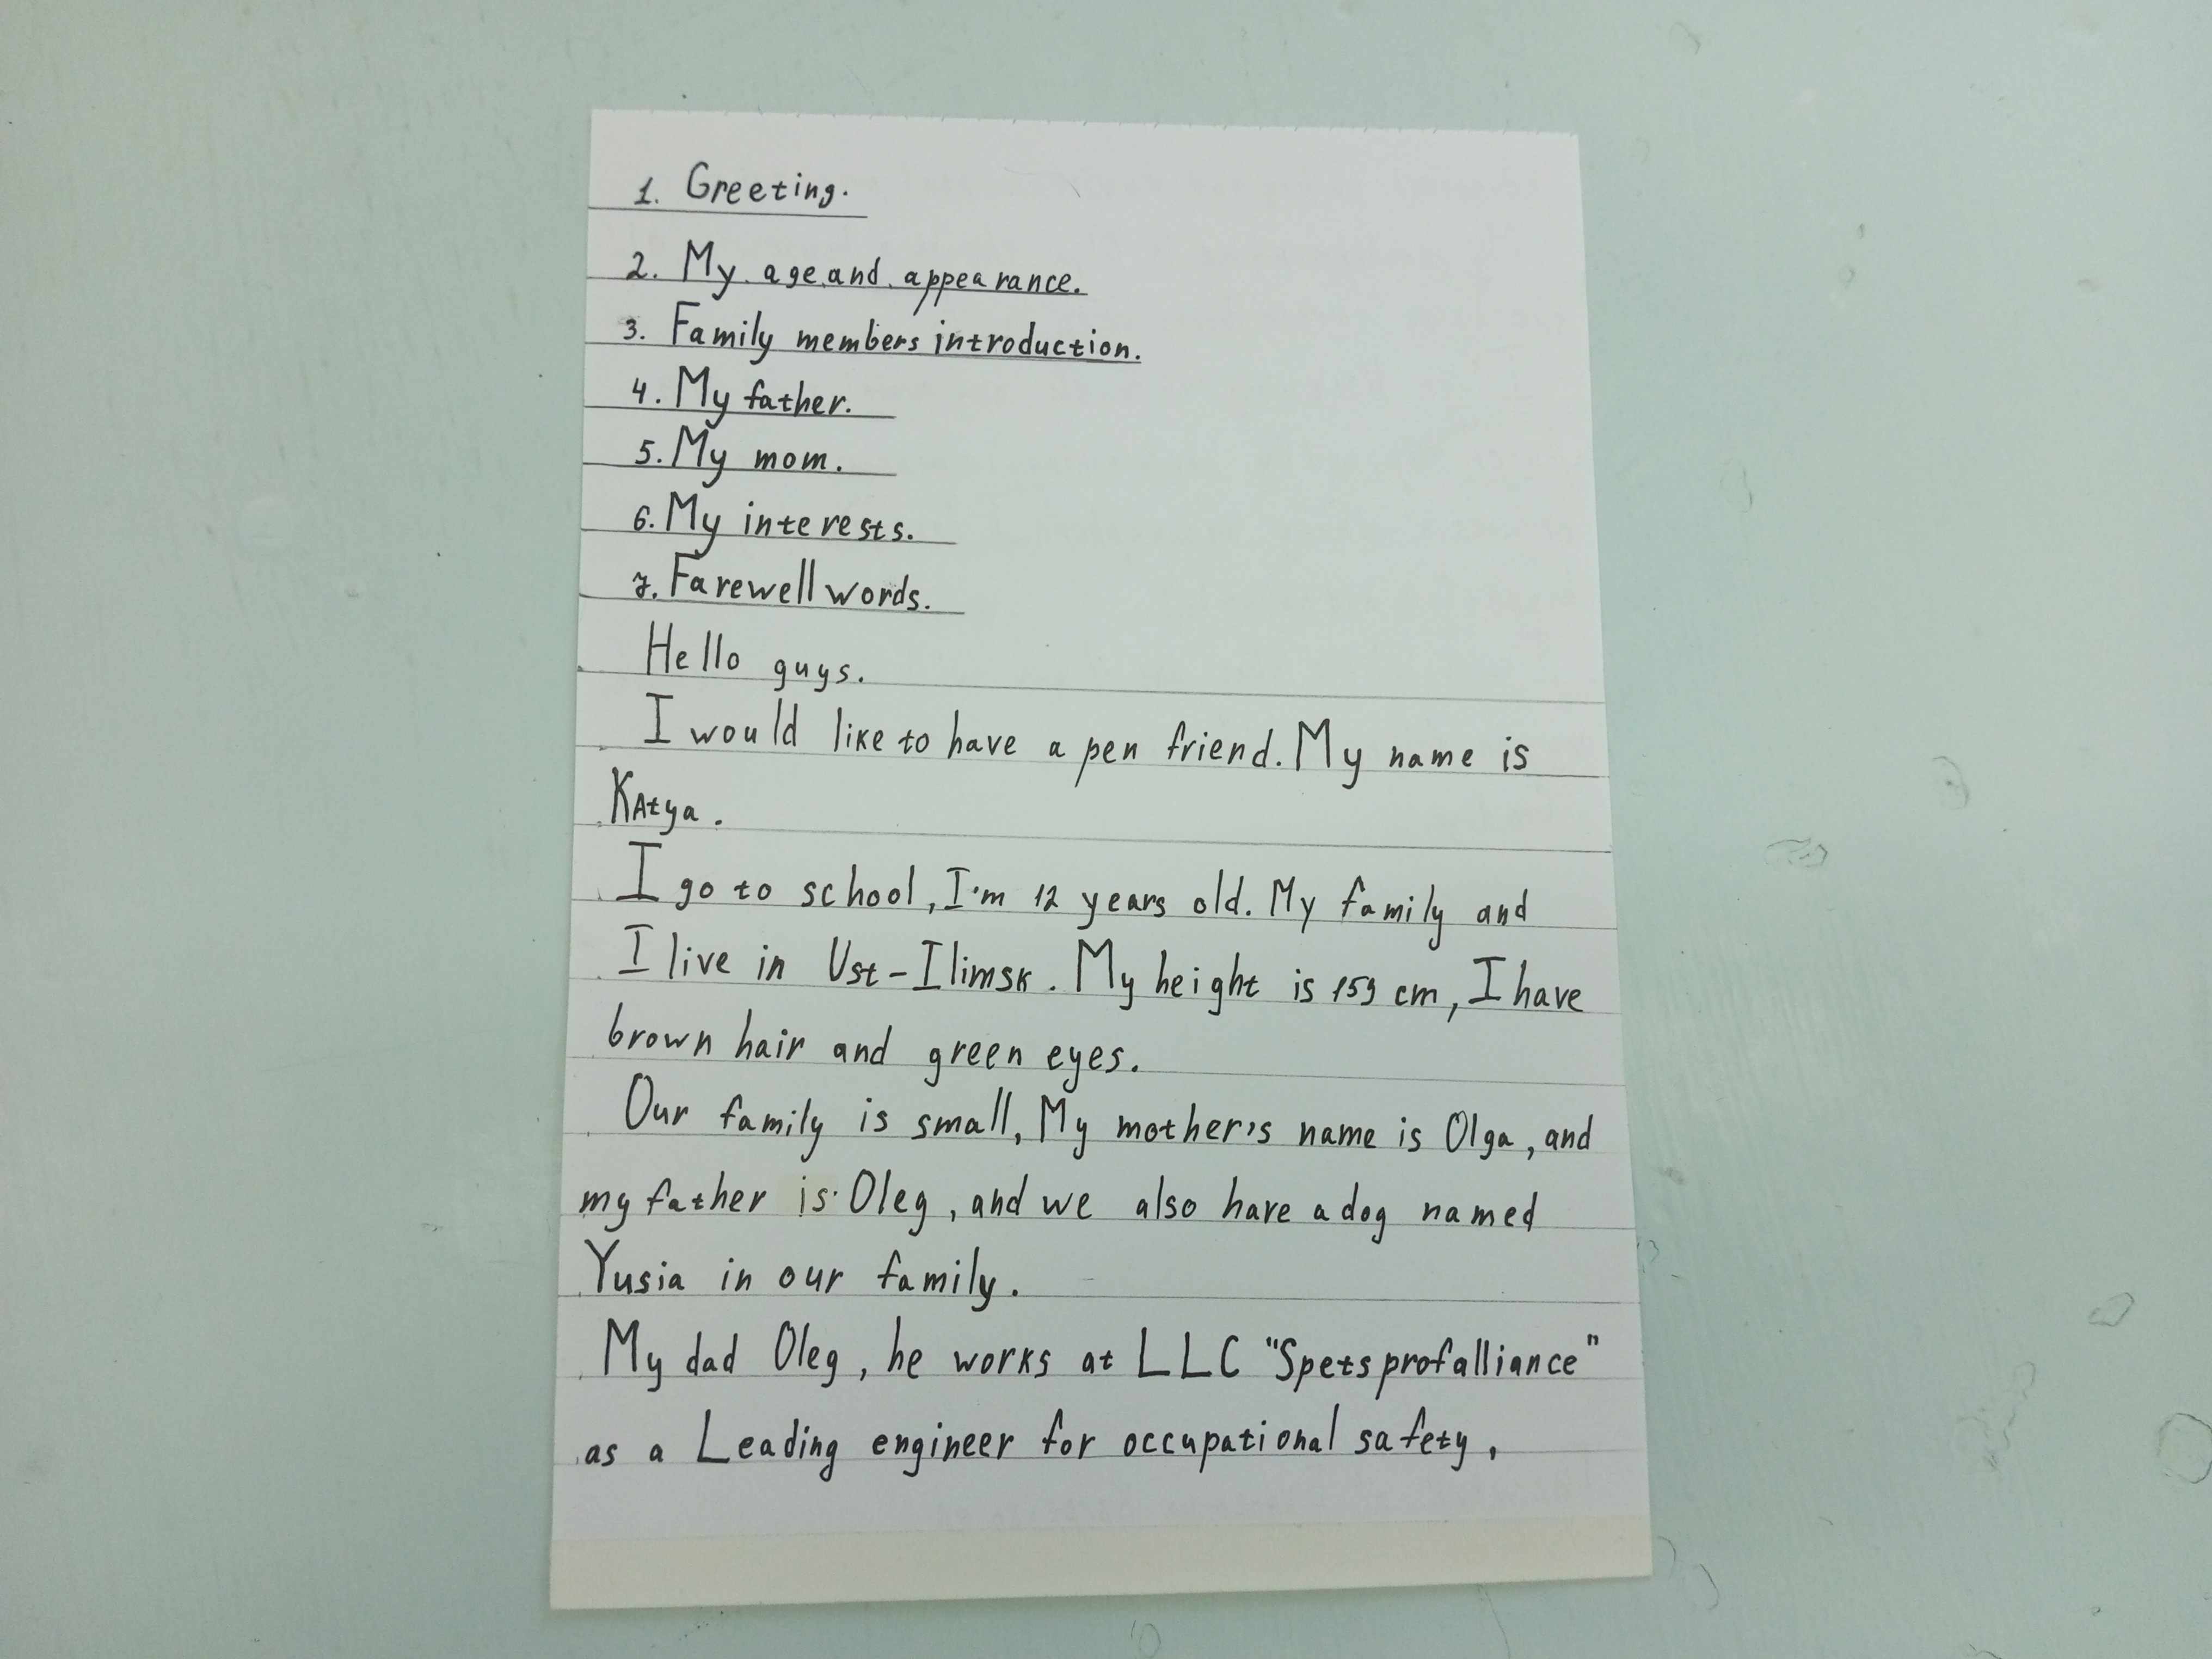 1. Greeting.
2. My age and appearance.
3. Family members introduction.
4. My father.
5. My mom.
6. My interests.
7. Farewell words.
Hello guys.
I would like to have a pen friend. My name is
KAtya.
I go to school, I'm 12 years old. My family and
I live in Ust-Ilimsk. My height is 159 cm, I have
brown hair and green eyes.
Our family is small, My mother's name is Olga, and
my father is Oleg, and we also have a dog named
Yusia in our family.
My dad Oleg, he works at LLC "Spetsprofalliance"
as a Leading engineer for occupational safety,